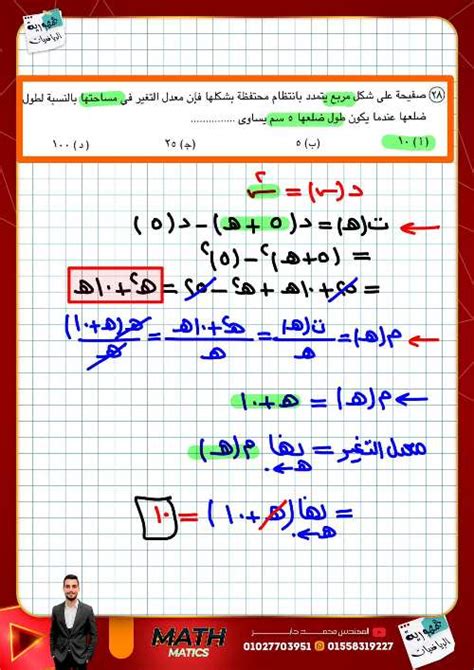 جمهورية
الرياضيات
٢٨ صفيحة على شكل مربع يتمدد بانتظام محتفظة بشكلها فإن معدل التغير فى مساحتها بالنسبة لطول
ضلعها عندما يكون طول ضلعها ٥ سم يساوى ...............
(أ) ١٠ (ب) ٥ (ج) ٢٥ (د) ١٠٠
د(س) = س٢
ت(هـ) = د(٥ + هـ) – د(٥)
= (٥+هـ)٢ – (٥)٢
= ٢٥ + ١٠هـ + هـ٢ – ٢٥ = هـ٢ + ١٠هـ
م(هـ) = ت(هـ)/هـ = هـ٢+١٠هـ/هـ = هـ(هـ+١٠)/هـ
م(هـ) = هـ + ١٠
معدل التغير = نهـا م(هـ)
هـ←٠
= نهـا (هـ + ١٠) = ١٠
هـ←٠
MATH
MATICS
المهندس محمد جابر
01027703951 01558319227
جمهورية
الرياضيات